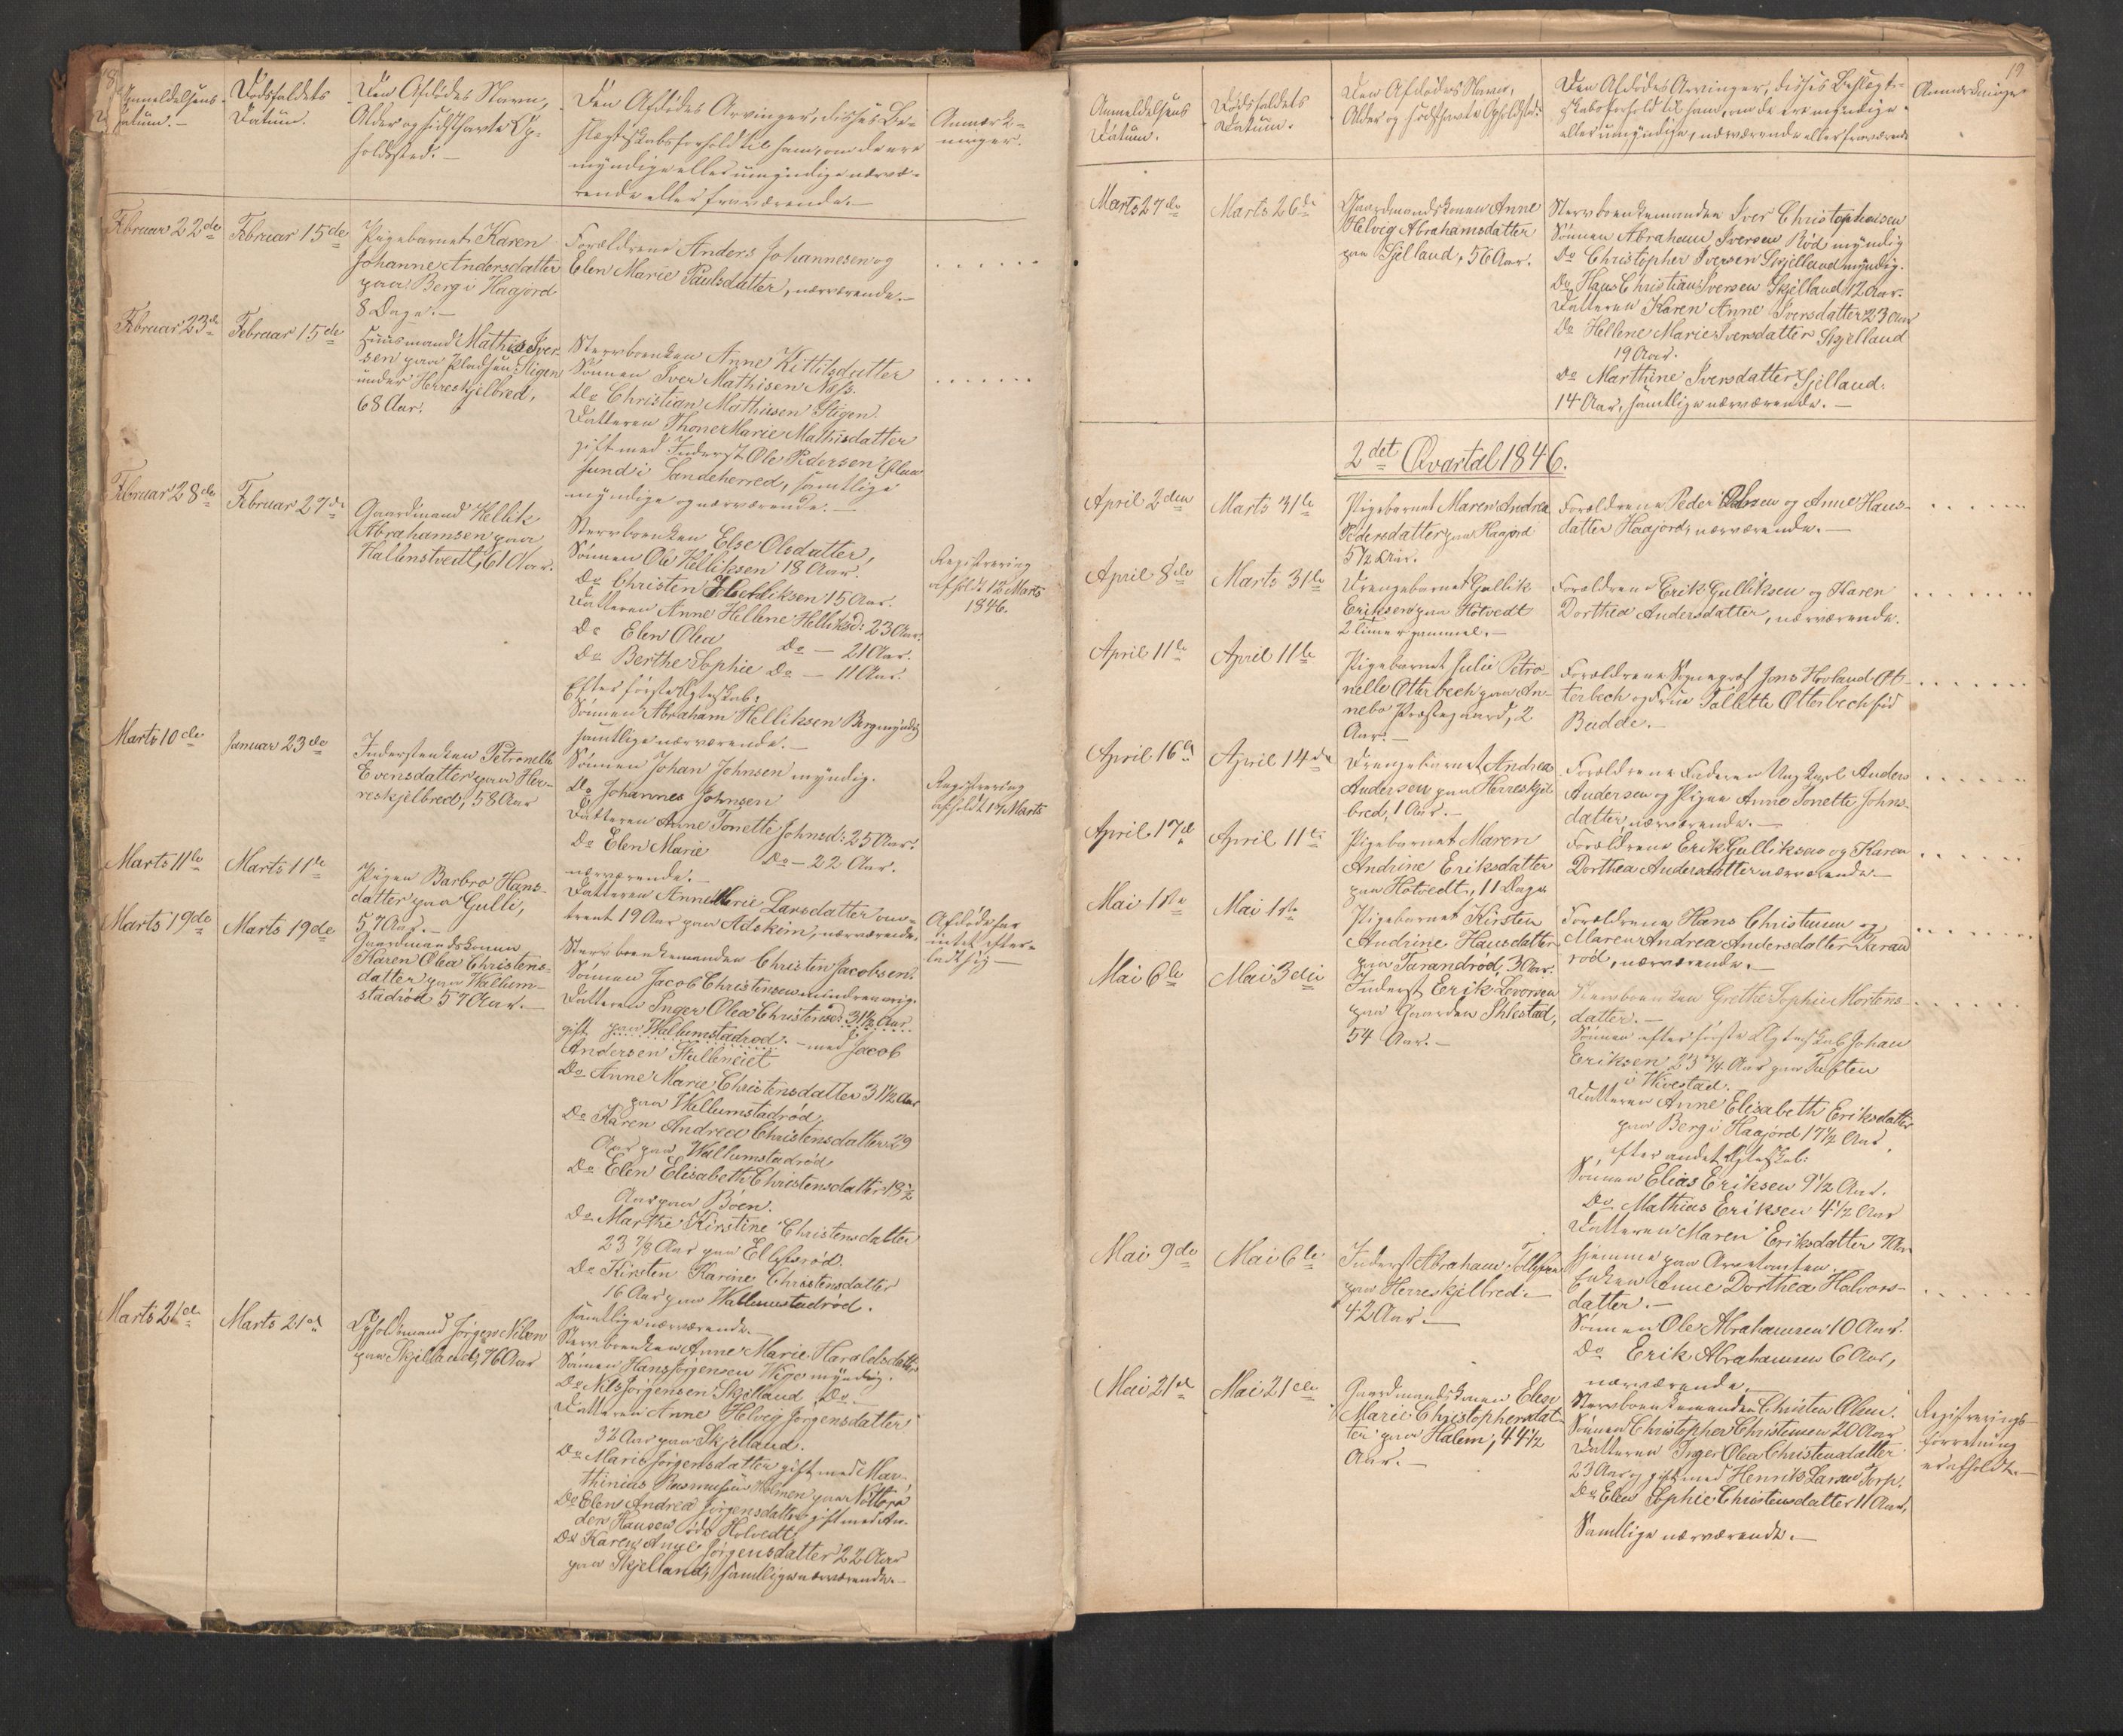 18
Anmeldelsens
Datum.-
Dødsfaldets
Datum.
Den Afdødes Navn,
Alder og sidsthavte Op-
holdssted.-
Den Afdødes Arvinger, disses Be-
slægtskabsforhold til ham, om de ere
myndige eller umyndige nærvæ-
rende eller fraværende.-
Anmærk-
ninger.
Februar 22de
Februar 15de
Pigebarnet Karen
Johanne Andersdatter
paa Berg i Haajord
8 Dage.-
Forældrene Anders Johannesen og
Elen Marie Paulsdatter, nærværende.-
Februar 23de
Februar 15de
Huusmand Mathis Iver-
sen paa Pladsen Stigen
under Herreskjelbred,
68 Aar.
Stervboenken Anne Kittilsdatter
Sønnen Iver Mathisen Næss.
Do Christian Mathisen Stigen.
Datteren Thone Marie Mathisdatter
gift med Inderst Ole Pedersen
sund i Sandeherred, samtlige
myndige og nærværende.-
Februar 28de
Februar 27de
Gaardmand Hellik
Abrahamsen paa
Hallenstvedt, 61 Aar.
Stervboenken Else Olsdatter,
Sønnen Ole Helliksen 18 Aar.
Do Christen Helliksen 15 Aar.
Datteren Anne Hellene Helliksd: 23 Aar.
Do Elen Olea Do - 21 Aar.
Do Berthe Sophie Do - 11 Aar.
Efter første Egteskab,
Sønnen Abraham Helliksen Berg myndig
samtlige nærværende.-
Registrering
afholdt 12 Marts
1846.
Marts 10de
Januar 23de
Inderstenken Petronelle
Evensdatter paa Her-
reskjelbred, 58 Aar
Sønnen Johan Johnsen myndig.
Do Johannes Johnsen
Datteren Anne Tonette Johnsd: 25 Aar.
Do Elen Marie Do - 22 Aar.
nærværende.-
Registrering
afholdt 17 Marts
Marts 11te
Marts 11te
Pigen Barbro Hans-
datter paa Gulli,
57 Aar.-
Datteren Anne Marie Larsdatter om-
trent 19 Aar paa Adskem, nærværende.
Afdøde har
intet efter-
ladt sig-
Marts 19de
Marts 19de
Gaardmandskonen
Karen Olea Christens-
datter paa Wallum-
stadrød 57 Aar.-
Stervboenkemanden Christen Jacobsen.
Sønnen Jacob Christensen mindreaarig.
Datteren Inger Olea Christensd: 31½ Aar
gift paa Wallumstadrød.- med Jacob
Andersen Stulleneiet
Do Anne Marie Christensdatter 31½ Aar
paa Wallumstadrød,
Do Karen Andrea Christensdatter 29
Aar paa Wallumstadrød
Do Elen Elisabeth Christensdatter 18½
Aar paa Bøen.
Do Marthe Kirstine Christensdatter
23 7/8 Aar paa Ellefsrød.
Do Kirsten Karine Christensdatter
16 Aar paa Wallumstadrød.
samtlige nærværende.-
Marts 21de
Marts 21de
Opholdsmand Jørgen Nilsen
paa Skjelland, 76 Aar
Stervboenken Anne Marie Haraldsdatter
Sønnen Hans Jørgensen Wige myndig.
Do Nils Jørgensen Skjelland Do.-
Datteren Anne Helvig Jørgensdatter
32 Aar paa Skjelland.
Do Maria Jørgensdatter gift med Mar-
thinius Rasmusen Holmen paa Nøtterø
Do Elen Andrea Jørgensdatter gift med An-
ders Hansen Holvedt,
Do Karen Anne Jørgensdatter 22 Aar
paa Skjelland, samtlige nærværende.-
19
Anmeldelsens
Datum.
Dødsfaldets
Datum.
Den Afdødes Navn,
Alder og sidsthavte Opholdsted.
Den Afdødes Arvinger, disses Beslægt-
skabsforhold til ham, om de ere myndige
eller umyndige, nærværende eller fraværende
Anmærkninger
Marts 27de
Marts 26de
Gaardmandskonen Anne
Helvig Abrahamsdatter
paa Sjelland, 56 Aar.
Stervboenkemanden Iver Christophersen
Sønnen Abraham Iversen Rød myndig
Do Christopher Iversen Skjelland myndig.
Do Hans Christian Iversen Skjelland 12 Aar.
Datteren Karen Anne Iversdatter 23 Aar
Do Hellene Marie Iversdatter Skjelland
19 Aar.
Do Marthine Iversdatter Sjelland.
14 Aar, samtlige nærværende.-
2det Qvartal 1846.
April 2den
Marts 31te
Pigebarnet Maren Andrea
Pedersdatter paa Haajord
5½ Aar.
Forældrene Peder Olsen og Anne Hans-
datter Haajord, nærværende.-
April 8de
Marts 31te
Drengebarnet Gullik
Eriksen paa Hotvedt
2 timer gammel.-
Forældrene Erik Gulliksen og Karen
Dorthea Andersdatter, nærværende.
April 11te
April 11te
Pigebarnet Julie Petro-
nelle Otterbech paa An-
nebo Præstegaard, 2
Aar.-
Forældrene Sognepræst Jens Hovland Ot-
terbech og Frue Tallette Otterbech fød
Budde.-
April 16de
April 14de
Drengebarnet Andreas
Andersen paa Herreskjel-
bred, 1 Aar.-
Forældrene Faderen Ungkarl Anders
Andersen og Pigen Anne Tonette Johns-
datter nærværende.-
April 17de
April 11te
Pigebarnet Maren
Andrine Eriksdatter
paa Hotvedt, 11 Dage
Forældrene Erik Gulliksen og Karen
Dorthea Andersdatter nærværende.-
Mai 1ste
Mai 1ste
Pigebarnet Kirsten
Andrine Hansdatter
paa Tarandrød, 3 Aar.
Forældrene Hans Christensen og
Maren Andrea Andersdatter Taran-
rød, nærværende.-
Mai 6te
Mai 3die
Inderst Erik Levorsen
paa Gaarden Ihlestad,
54 Aar.-
Stervboenken Grethe Sophie Mortens-
datter.-
Sønnen efter første Egteskab Johan
Eriksen 23¾ Aar paa Tuften
i Kvestad.
Datteren Anne Elisabeth Eriksdatter
paa Berg i Haajord 17½ Aar
efter andet Egteskab:
Sønnen Elias Eriksen 9½ Aar.
Do Mathias Eriksen 4½ Aar
Datteren Maren Eriksdatter 7 Aar
hjemme paa Arvetomten.
Mai 9de
Mai 6te
Inderst Abraham Tollefsen
paa Herreskjelbred.-
42 Aar.-
Enken Anne Dorthea Halvors-
datter.-
Sønnen Ole Abrahamsen 10 Aar.
Do Erik Abrahamsen 6 Aar,
nærværende.
Mai 21de
Mai 21de
Gaardmandskonen Elese
Marie Christophersdat-
ter paa Halem, 44½
Aar.-
Stervboenkemanden Christen Olsen.
Sønnen Christopher Christensen 20 Aar
Datteren Inger Olea Christensdatter
23 Aar, gift med Henrik Larsen Torp.
Do Elen Sophie Christensdatter 11 Aar,
Samtlige nærværende.-
Registrerings-
forretning
er afholdt.-